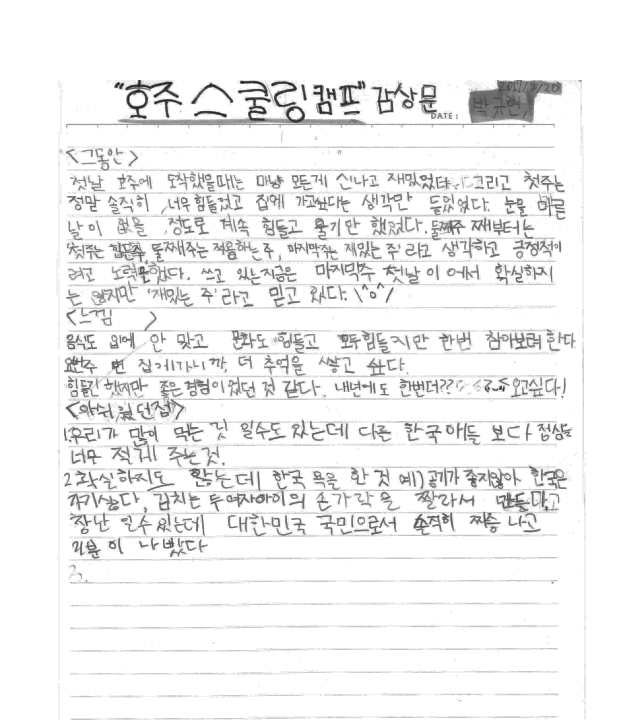 "호주 스쿨링캠프" 감상문
DATE : 박규현
<그동안>
첫날 호주에 도착했을때는 마냥 모든게 신나고 재밌었다. 그리고 첫주는
정말 솔직히 너무 힘들었고 집에 가고싶다는 생각만 들었었다. 눈물 마를
날이 없을 정도로 계속 힘들고 울기만 했었다. 둘째주 째부터는
'첫주는 힘든주, 둘째주는 적응하는주, 마지막주는 재밌는 주'라고 생각하고 긍정적이
려고 노력했다. 쓰고 있는지금은 마지막주 첫날 이어서 확실하지
는 않지만 '재밌는 주'라고 믿고 있다. \^o^/
<느낌 >
음식도 입에 안 맞고 문화도 힘들고 모두힘들지만 한번 참아보려 한다
요번주 면 집에가니까, 더 추억을 쌓고 싶다.
힘들긴 했지만 좋은 경험이었던 것 같다. 내년에도 한번더?? 오고싶다!
<아쉬웠던점>
1.우리가 많이 먹는 것 일수도 있는데 다른 한국애들 보다 점심을
너무 적게 주는것.
2.확실하지도 않는데 한국 욕을 한 것 예) 공기가 좋지않아 한국은
가기싫다, 김치는 두 여자아이의 손가락을 짤라서 만들다고
장난 일수 있는데 대한민국 국민으로서 솔직히 짜증 나고
기분이 나빴다
3.